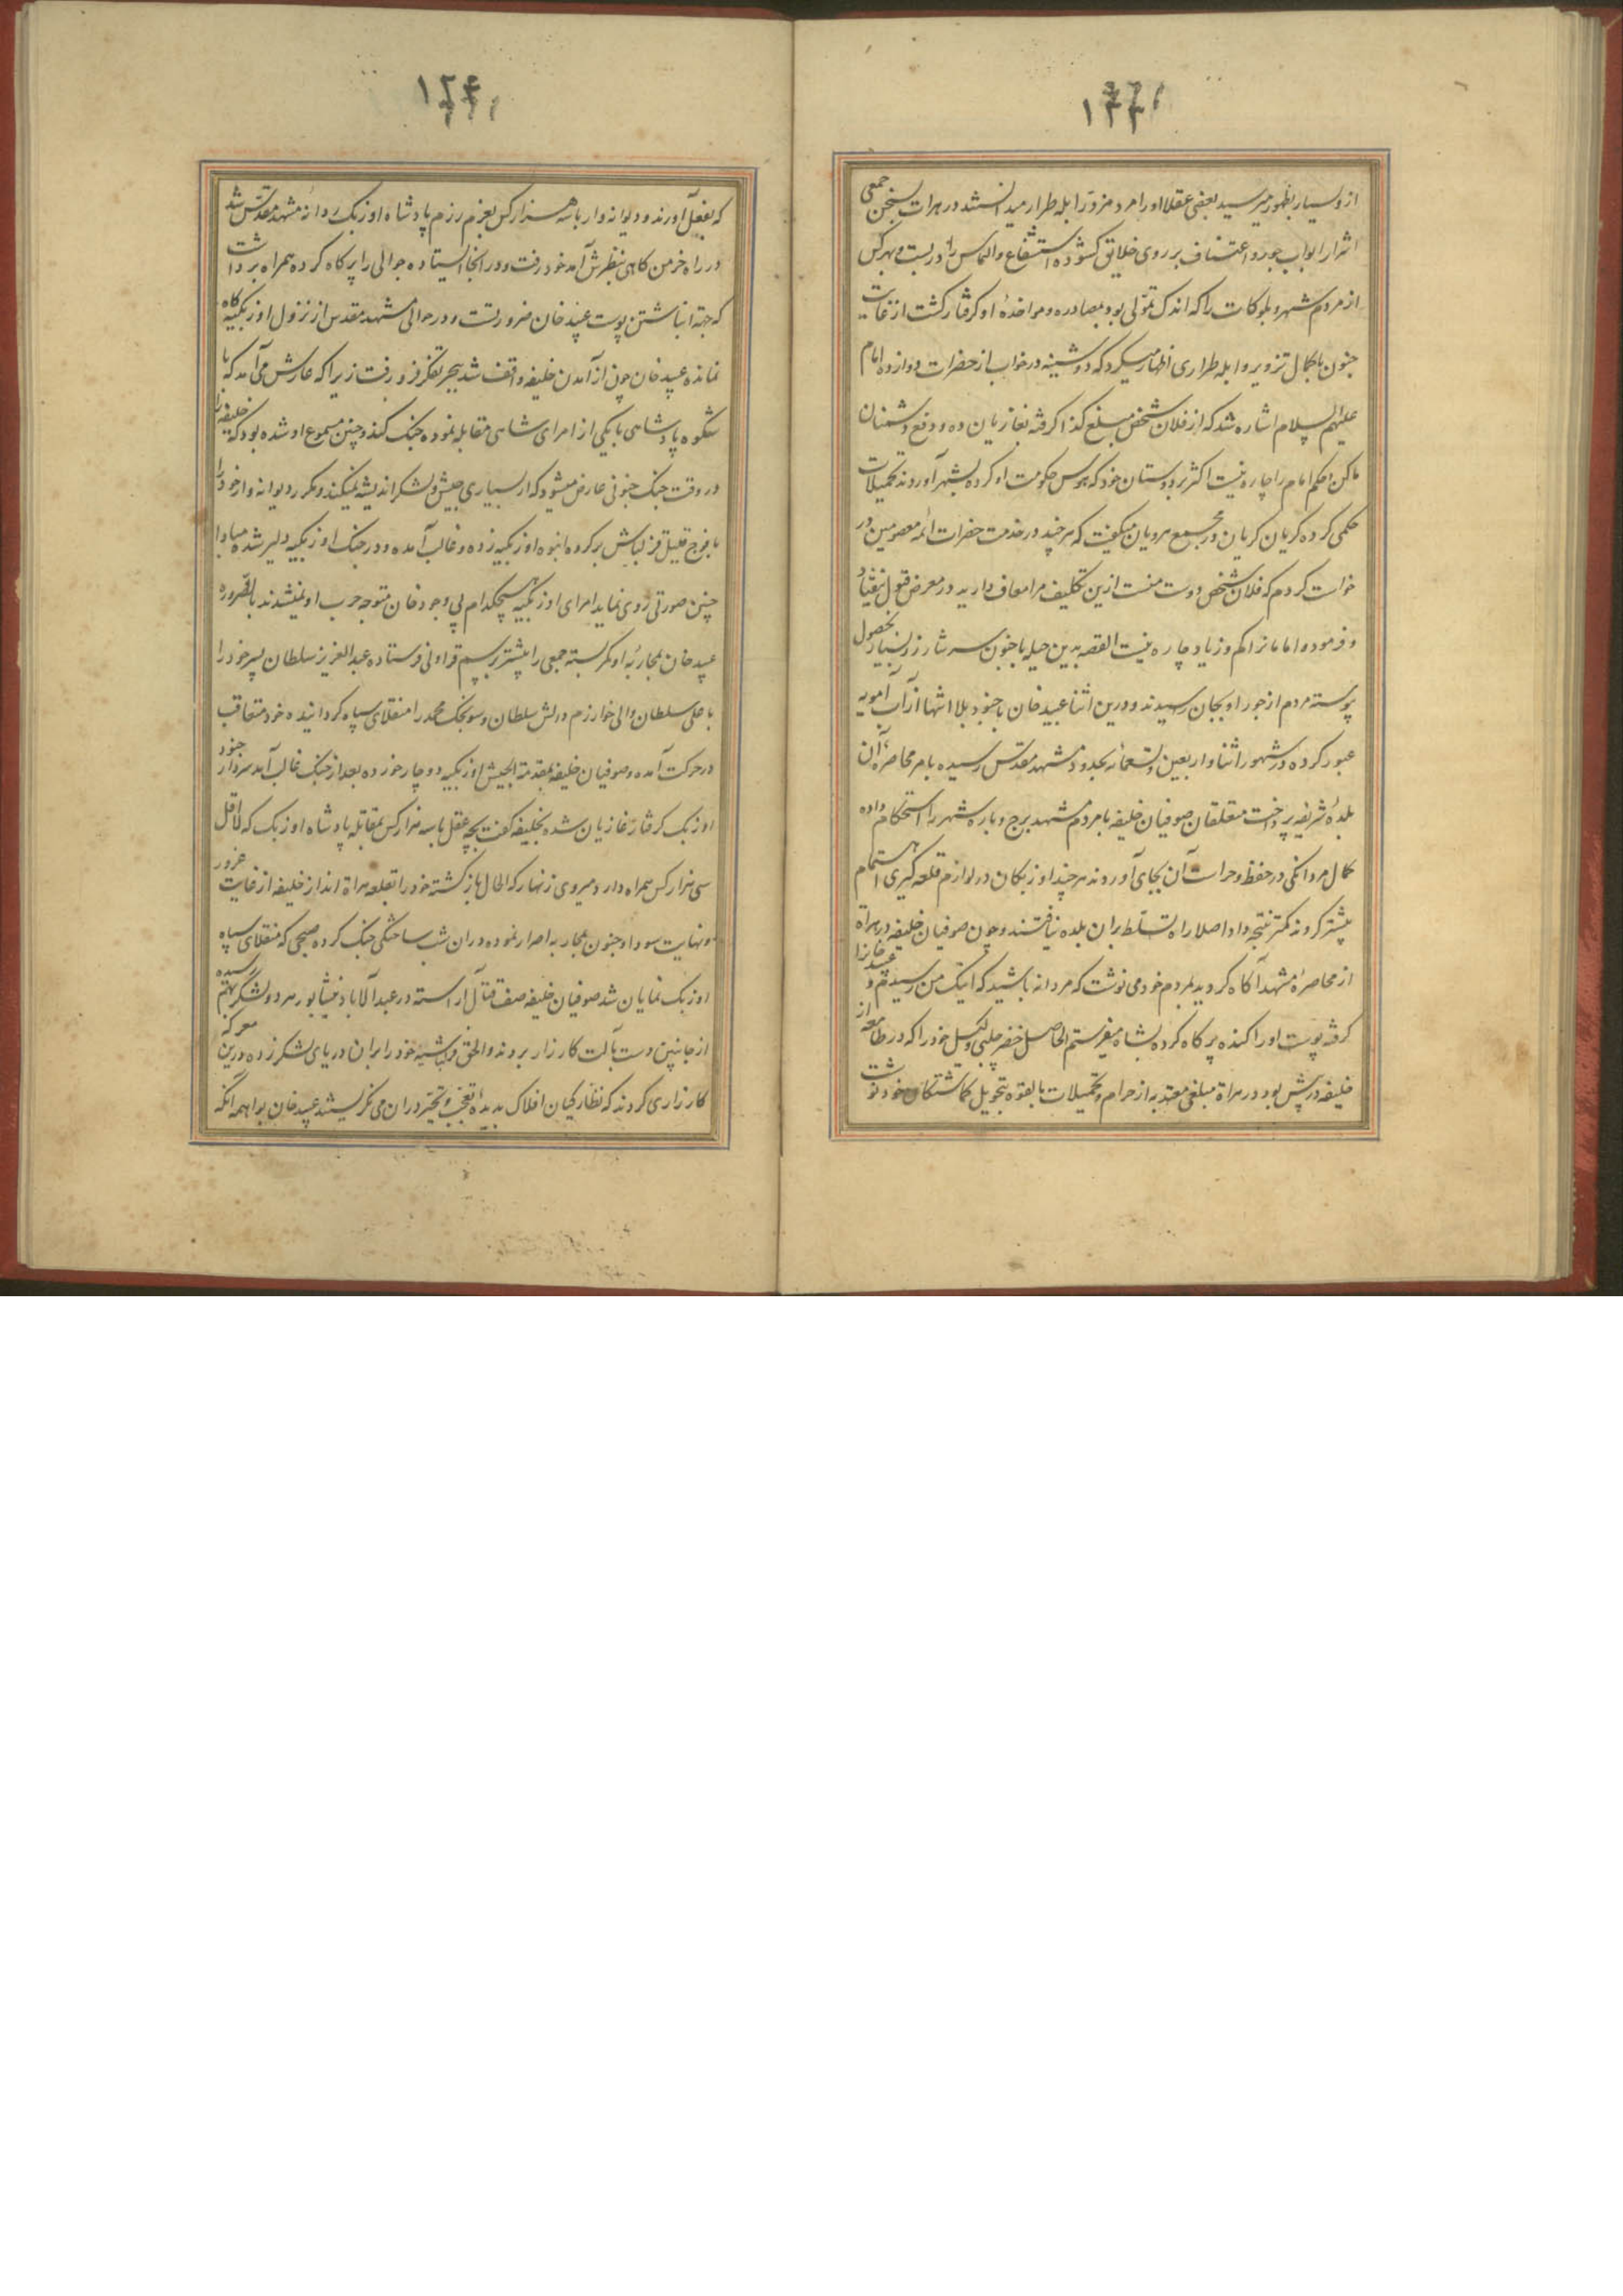 ۱۲۳
از و بسیار بظهور میرسید بعضی عقلا او را مرد مزور ابله طرار میدانستند در هرات بسخن جمعی
اشرار ابواب جور و اعتساف بر روی خلایق کشوده استشفاع و التماس را در بست و بهر کس
از مردم شهر و بلوکات را که اندک تمولی بود بمصادره و مواخذهٔ او کرفتار کشت از غایت
جنون با کمال تزویر و ابله طراری اظهار میکرد که دوشینه در خواب از حضرات دوازده امام
علیهم السلام اشاره شد که از فلان شخص مبلغ کذا کرفته بغازیان ده و دفع دشمنان
ما کن و حکم امام را چاره نیست اکثر بر دوستان خود که هوس حکومت او کرده بشهر آوردند تحمیلات
حکمی کرده کریان کریان در مجمع مرویان میکفت که هر چند در خدمت حضرات ائمه معصومین در
خواست کردم که فلان شخص دوست منست ازین تکلیف مرا معاف دارید در معرض قبول نیفتاد
و فرمودند اما مانرا کم و زیاد چاره نیست القصه بدین حیله با جنون سرشار زر بسیار بحصول
پوسته مردم از جور او بجان رسیدند و درین اثنا عبید خان با جنود بلا انتها از آب آمویه
عبور کرده در شهور اثنا و اربعین و تسعمائه بحدود مشهد مقدس رسیده بامر محاصره آن
بلدهٔ شریفه پرداخت متعلقان صوفیان خلیفه با مردم مشهد برج و باره شهر را استحکام داده
کمال مردانکی در حفظ و حراست آن بجای آوردند هر چند اوزبکان در لوازم قلعه کیری اهتمام
بیشتر کردند کمتر نتیجه داد و اصلا راه تسلط بران بلده نیافتند و چون صوفیان خلیفه در هراة
از محاصرهٔ مشهد آکاه کردید بمردم خود می نوشت که مردانه باشید که اینک من رسیدم و عبید خانرا
کرفته پوست او را کنده پر کاه کرده بشاه میفرستم الحاصل خضر چلبی وکیل خود را که در طامعه از
خلیفه در پیش بود در هراة مبلغی معتد به از حرام و تحمیلات بالقوه تحویل کماشتکان خود نوشت
۱۲۴
که بفعل آورند و دیوانه وار با سه هزار کس بعزم رزم پادشاه اوزبک روانهٔ مشهد مقدس شد
در راه خرمن کاهی بنظرش آمد خود رفت و در انجا ایستاده جوالی را پر کاه کرده همراه برداشت
که جهة انباشتن پوست عبید خان ضرورتست و در حوالی مشهد مقدس از نزول اوزبکیه کاه
نمانده عبید خان چون از آمدن خلیفه واقف شد ببحر تفکر فرو رفت زیرا که عارش می آمد که با
شکوه پادشاهی با یکی از امرای شاهی مقابله نموده جنک کند و چنین مسموع او شده بود که خلیفه را
در وقت جنک جنونی عارض میشود که از بسیاری جیش و لشکر اندیشه نمیکند و مکرر دیوانه وار خود را
با فوج قلیل قزلباش بر کروه انبوه اوزبکیه زده و غالب آمده و در جنک اوزبکیه دلیر شده مبادا
چنین صورتی روی نماید امرای اوزبکیه هیچکدام بی وجود خان متوجه حرب او نمیشدند بالضروره
عبید خان بمحاربهٔ او کمر بسته جمعی را پیشتر برسم قراولی فرستاده عبدالعزیز سلطان پسر خود را
با علی سلطان والی خوارزم و رلش سلطان و سونجک محمد را منقلای سپاه کردانیده خود متعاقب
در حرکت آمده و صوفیان خلیفه بمقدمة الجیش اوزبکیه دوچار خورده بعد از جنک غالب آمد سردار جنود
اوزبک کرفتار غازیان شده بخلیفه کفت بچه عقل با سه هزار کس بمقابله پادشاه اوزبک که لااقل
سی هزار کس همراه دارد میروی زنهار که الحال بازکشته خود را بقلعه هراة انداز خلیفه از غایت غرور
و نهایت سودا و جنون بمحاربه اصرار نموده دران شب ساختکی جنک کرده صبحی که منقلای سپاه
اوزبک نمایان شد صوفیان خلیفه صف قتال آراسته در عبدال‌آباد نیشابور هر دو لشکر بهم رسیده
از جانبین دست بآلت کارزار بردند و الحق قزلباشیه خود را بران دریای لشکر زده درین معرکه
کارزاری کردند که نظارکیان افلاک بدیدهٔ تعجب و تحیر دران می نکریستند عبید خان بواهمه آنکه